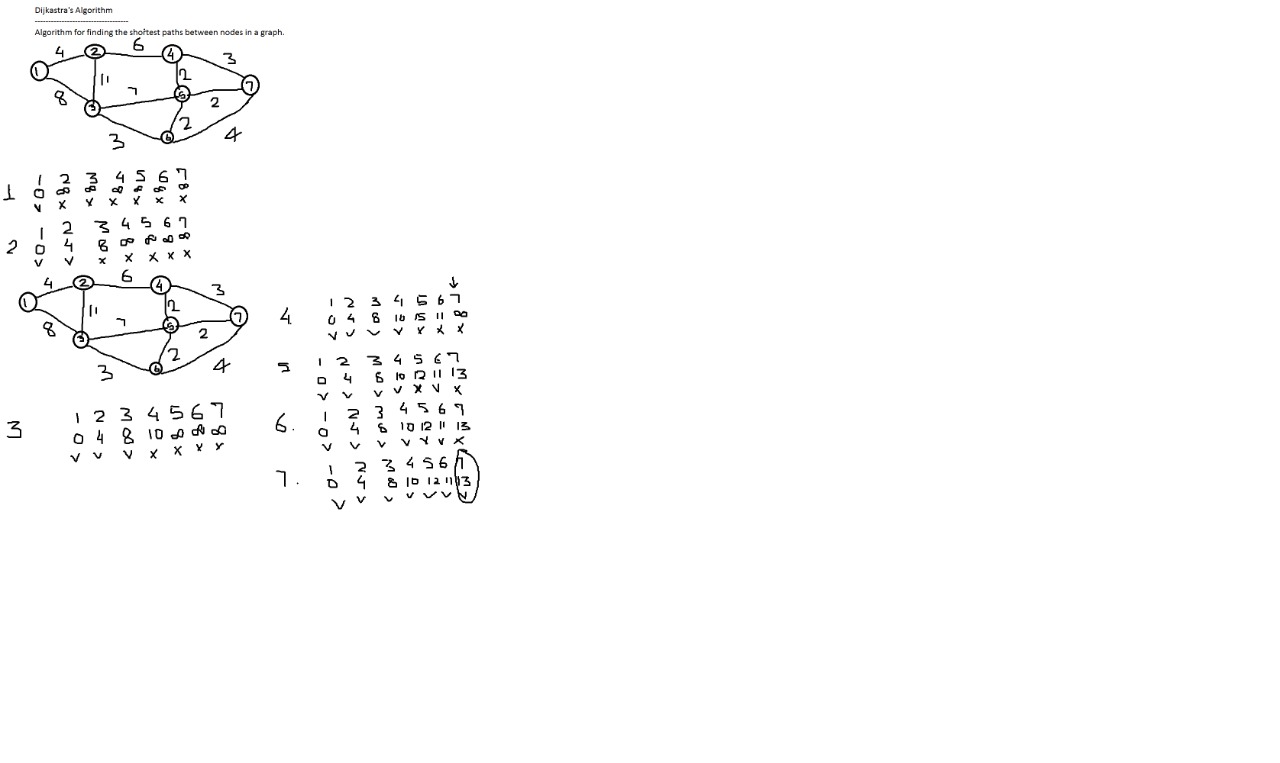 Dijkastra's Algorithm
------------------------------------
Algorithm for finding the shortest paths between nodes in a graph.
4 2 6 4 3
1 11 2 7
8 3 7 5 2
3 6 2 4
1 2 3 4 5 6 7
1 0 ∞ ∞ ∞ ∞ ∞ ∞
v x x x x x x
1 2 3 4 5 6 7
2 0 4 8 ∞ ∞ ∞ ∞
v v x x x x x
4 2 6 4 3
1 11 2 7
8 3 7 5 2
3 6 2 4
1 2 3 4 5 6 7
3 0 4 8 10 ∞ ∞ ∞
v v v x x x x
↓
1 2 3 4 5 6 7
4 0 4 8 10 15 11 ∞
v v v v x x x
1 2 3 4 5 6 7
5 0 4 8 10 12 11 13
v v v v x v x
1 2 3 4 5 6 7
6. 0 4 8 10 12 11 13
v v v v v v x
1 2 3 4 5 6 7
7. 0 4 8 10 12 11 13
v v v v v v v